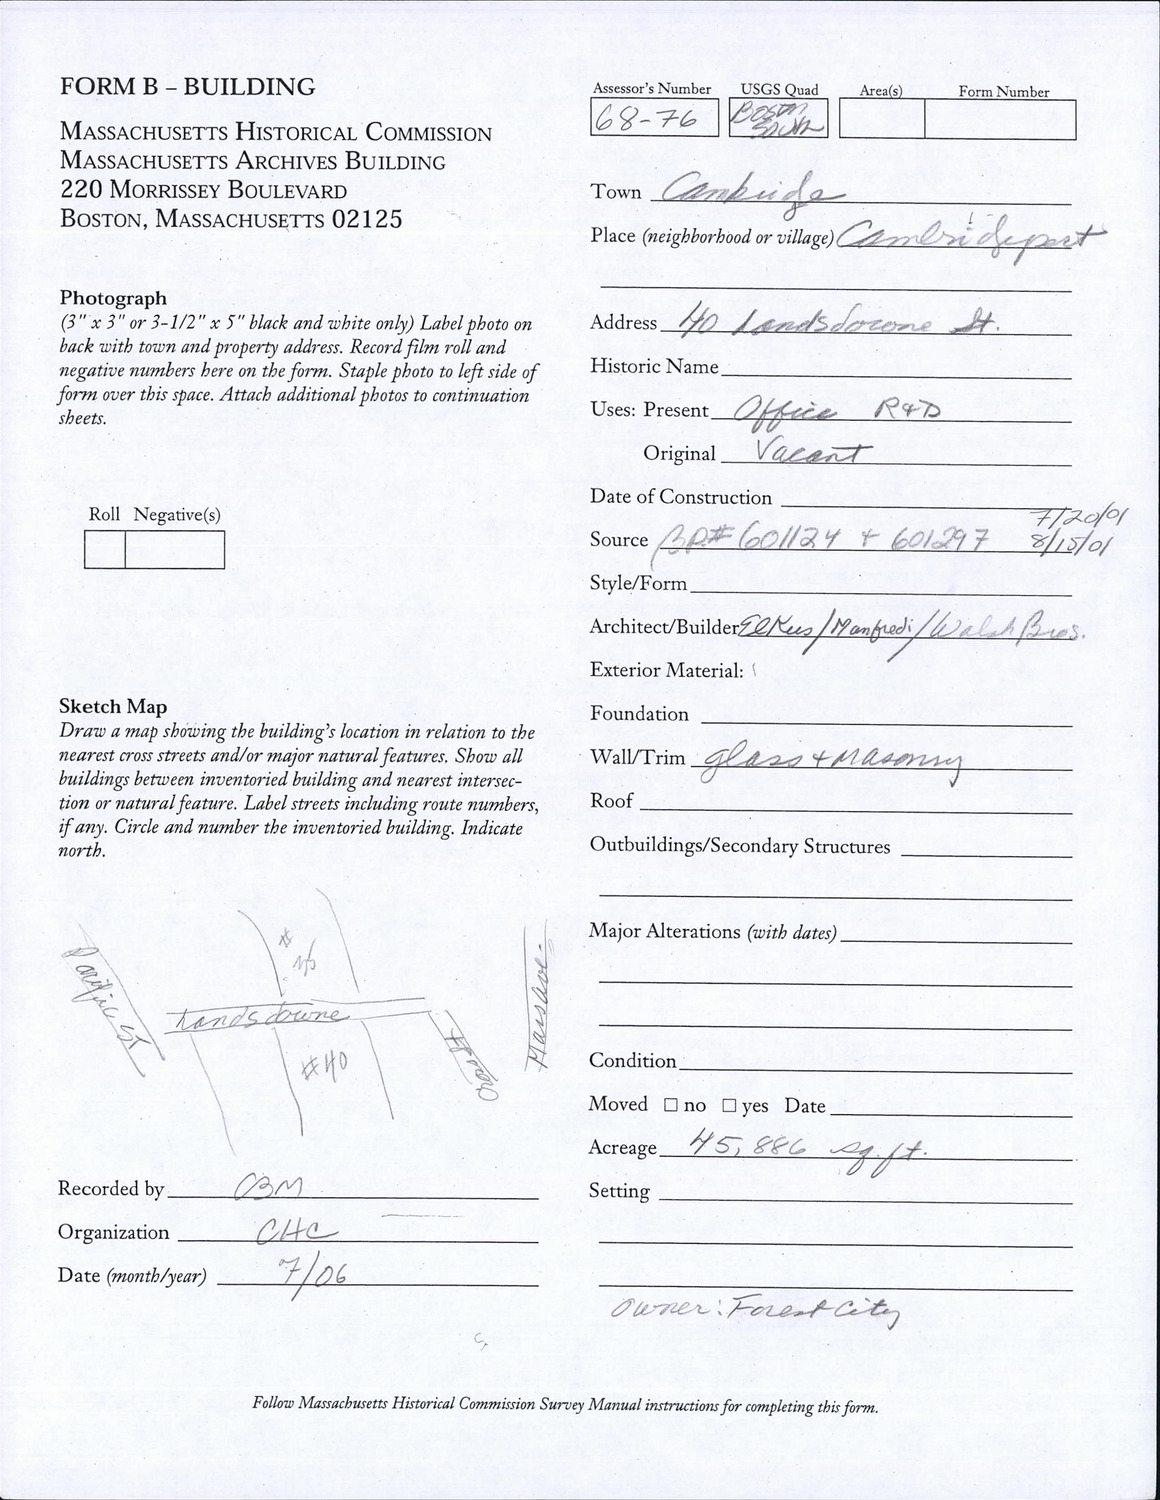 FORM B – BUILDING
MASSACHUSETTS HISTORICAL COMMISSION
MASSACHUSETTS ARCHIVES BUILDING
220 MORRISSEY BOULEVARD
BOSTON, MASSACHUSETTS 02125
Photograph
(3" x 3" or 3-1/2" x 5" black and white only) Label photo on
back with town and property address. Record film roll and
negative numbers here on the form. Staple photo to left side of
form over this space. Attach additional photos to continuation
sheets.
Roll Negative(s)
Sketch Map
Draw a map showing the building's location in relation to the
nearest cross streets and/or major natural features. Show all
buildings between inventoried building and nearest intersec-
tion or natural feature. Label streets including route numbers,
if any. Circle and number the inventoried building. Indicate
north.
#
Pacific St
Landsdowne
#40
Mass Ave.
Recorded by CBM
Organization CHC
Date (month/year) 7/06
Assessor's Number USGS Quad Area(s) Form Number
68-76 Boston South
Town Cambridge
Place (neighborhood or village) Cambridgeport
Address 40 Landsdowne St.
Historic Name
Uses: Present Office R&D
Original Vacant
Date of Construction
7/20/01
Source BP# 601124 + 601297 8/15/01
Style/Form
Architect/Builder Elkus/Manfredi/Walsh Bros.
Exterior Material:
Foundation
Wall/Trim glass + masonry
Roof
Outbuildings/Secondary Structures
Major Alterations (with dates)
Condition
Moved ☐ no ☐ yes Date
Acreage 45,886 sq. ft.
Setting
Owner: Forest City
Follow Massachusetts Historical Commission Survey Manual instructions for completing this form.